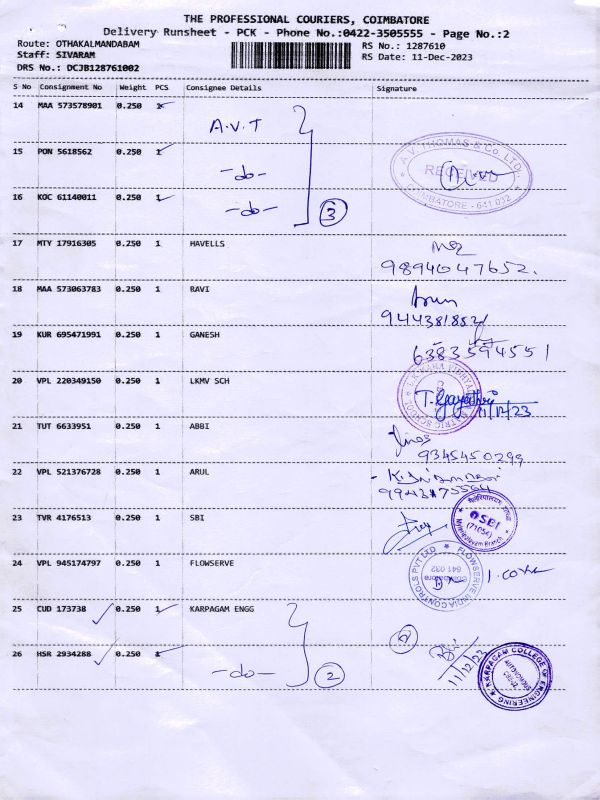 THE PROFESSIONAL COURIERS, COIMBATORE
Delivery Runsheet - PCK - Phone No.:0422-3505555 - Page No.:2
Route: OTHAKALMANDABAM RS No.: 1287610
Staff: SIVARAM RS Date: 11-Dec-2023
DRS No.: DCJB128761002
S No Consignment No Weight PCS Consignee Details Signature
14 MAA 573578901 0.250 1
A.V.T
15 PON 5618562 0.250 1
-do-
A.V. THOMAS & Co. LTD.
RECEIVED
COIMBATORE - 641 032
16 KOC 61140011 0.250 1
-do- 3
17 MTY 17916305 0.250 1 HAVELLS
9894047652.
18 MAA 573063783 0.250 1 RAVI
19 KUR 695471991 0.250 1 GANESH
6383594551
20 VPL 220349150 0.250 1 LKMV SCH
MATRIC SCHOOL
T. Gayathri
11/12/23
21 TUT 6633951 0.250 1 ABBI
9345450299
22 VPL 521376728 0.250 1 ARUL
23 TVR 4176513 0.250 1 SBI
SBI
24 VPL 945174797 0.250 1 FLOWSERVE
FLOWSERVE INDIA CONTROLS PVT LTD
Coimbatore
641 032
25 CUD 173738 0.250 1 KARPAGAM ENGG
26 HSR 2934288 0.250 1
-do- 2
2
11/12/23
KARPAGAM COLLEGE OF ENGINEERING
AUTONOMOUS